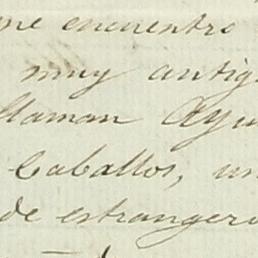 me encuentro
muy antig
llaman Ayu
Caballos, un
de estrangero